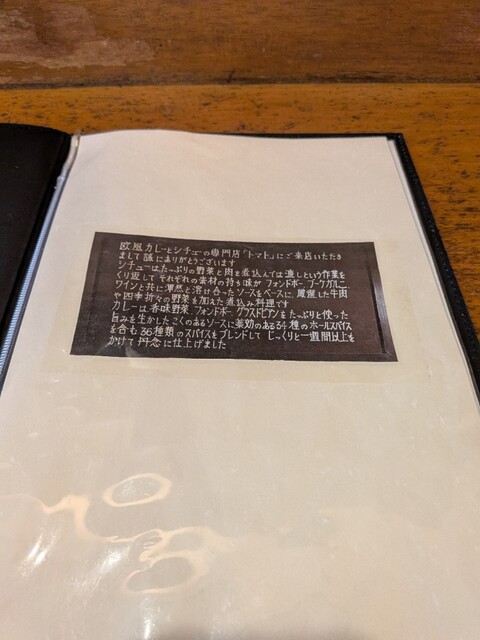 欧風カレーとシチューの専門店「トマト」にご来店いただき
まして誠にありがとうございます
シチューはたっぷりの野菜と肉を煮込んでは漉しという作業を
くり返して それぞれの素材の持ち味が フォンドボー ブーケガルニ
ワインと共に渾然と溶け合ったソースをベースに 厳選した牛肉
や四季折々の野菜を加えた煮込み料理です
カレーは香味野菜 フォンドボー グラスドビアンをたっぷりと使った
旨みを生かしたこくのあるソースに薬効のある34種のホールスパイス
を含む36種類のスパイスをブレンドして じっくりと一週間以上を
かけて丹念に仕上げました